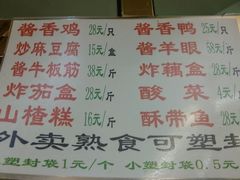 酱香鸡 28元/只 酱香鸭 25元/只
炒麻豆腐 15元/盒 酱羊眼 58元/斤
酱牛板筋 38元/斤 炸藕盒 28元/斤
炸茄盒 28元/斤 酸菜 4元/斤
山楂糕 16元/斤 酥带鱼 28元/斤
外卖熟食可塑封
塑封袋1元/个 小塑封袋0.5元/